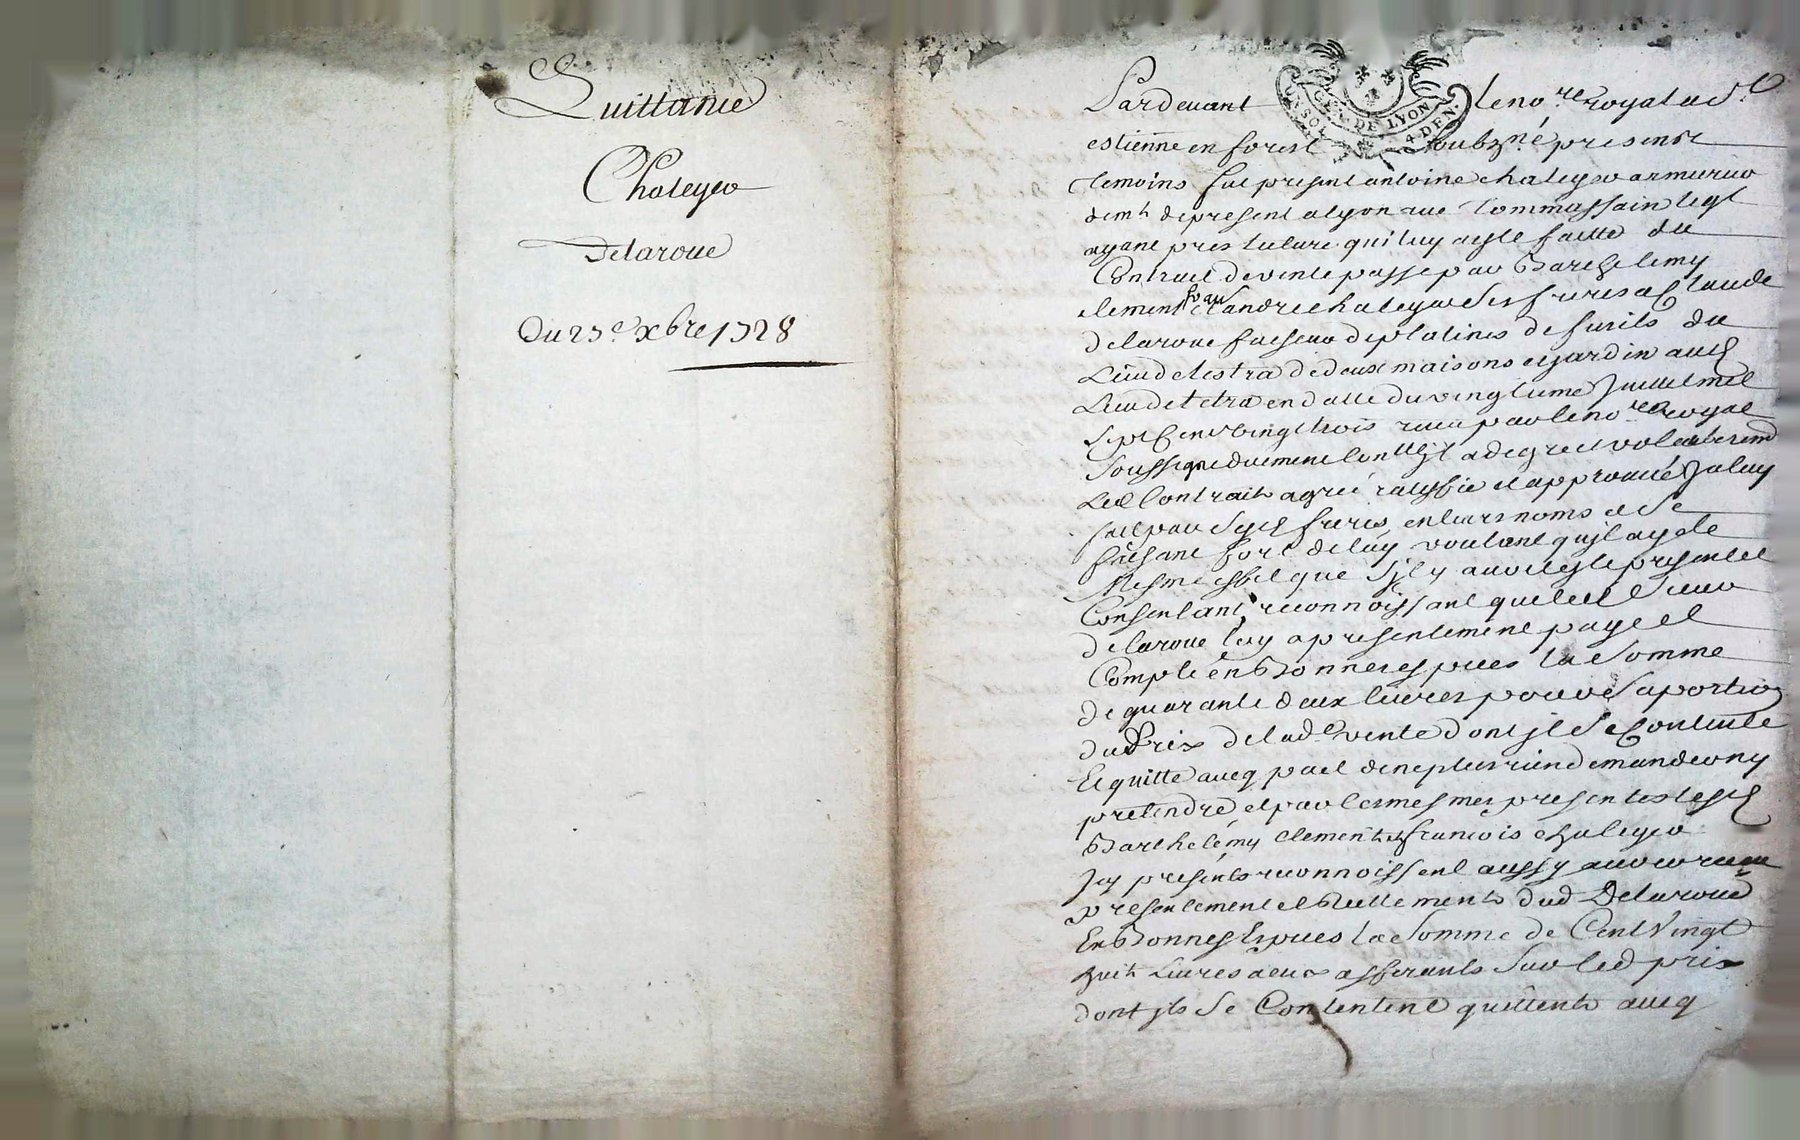 Quittance
Chaleyer
Delaroue
Du 23e xbre 1728
GEN. DE LYON
SOL 4 DEN.
Pardevant le no.re royal a St
estienne en forest soubzné presents
temoins fut present antoine chaleyer armurier
demt de present a lyon rue Tommassain leql
ayant pres lecture qui luy a este faitte du
Contract de vente passe par Barthelemy
clement et andre chaleyer ses freres a Claude
delaroue faiseur de platines de fusils du
Lieu de d deux maisons et jardin aud
Lieu de en datte du vingtieme Juillet mil
sept Cent vingt trois receu par le no.re royal
soussigne de gre et
Led Contrait agréé ratiffie et approuvé Jaluy
fait par sesd freres en leurs noms et se
faisant fort de luy voulant qu'il aye le
Mesme que s'il y avoit este present et
Consentant, reconnoissant que led sieur
delaroue luy a presentement paye et
Compte en Bonnes espices la somme
de quarante deux livres pour sa portion
du Prix de lad vente dont il se Contente
Et quitte aveq pact de ne plus rien demander ny
pretendre et par les mesmes presentes lesd
Barthelemy Clement et francois chaleyer
Jcy presents reconnoissent aussy avoir receu
presentement et reellement dud Delaroue
En Bonnes Espices la somme de Cent Vingt
huit Livres a eux afferants sur led prix
dont ils se Contentent quittent aveq